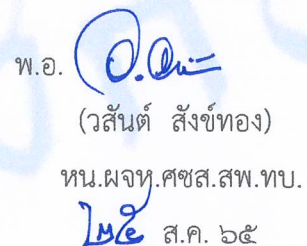 พ.อ.
(วสันต์ สังข์ทอง)
หน.ผจห.ศซส.สพ.ทบ.
๒๕ ส.ค. ๖๕